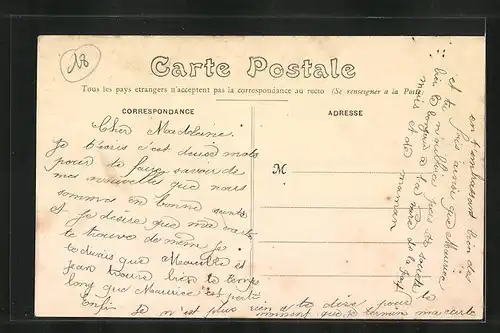 18
Carte Postale
Tous les pays étrangers n'acceptent pas la correspondance au recto (Se renseigner à la Poste
CORRESPONDANCE
ADRESSE
M
Cher Madelaine
Je t'écris c'est deux mots
pour te faire savoir de
mes nouvelles que nous
sommes en bonne santé
et je désire que ma carte
te trouve de même je
te dirais que
jean trouve bien le temps
long que Maurice est parti
Enfin je n'est plus rien a te dire pour le
moment que de termin ma carte
en t'embrassant bien des
fois ainsi que Maurice
et tu
bien le
de la part
et de maman